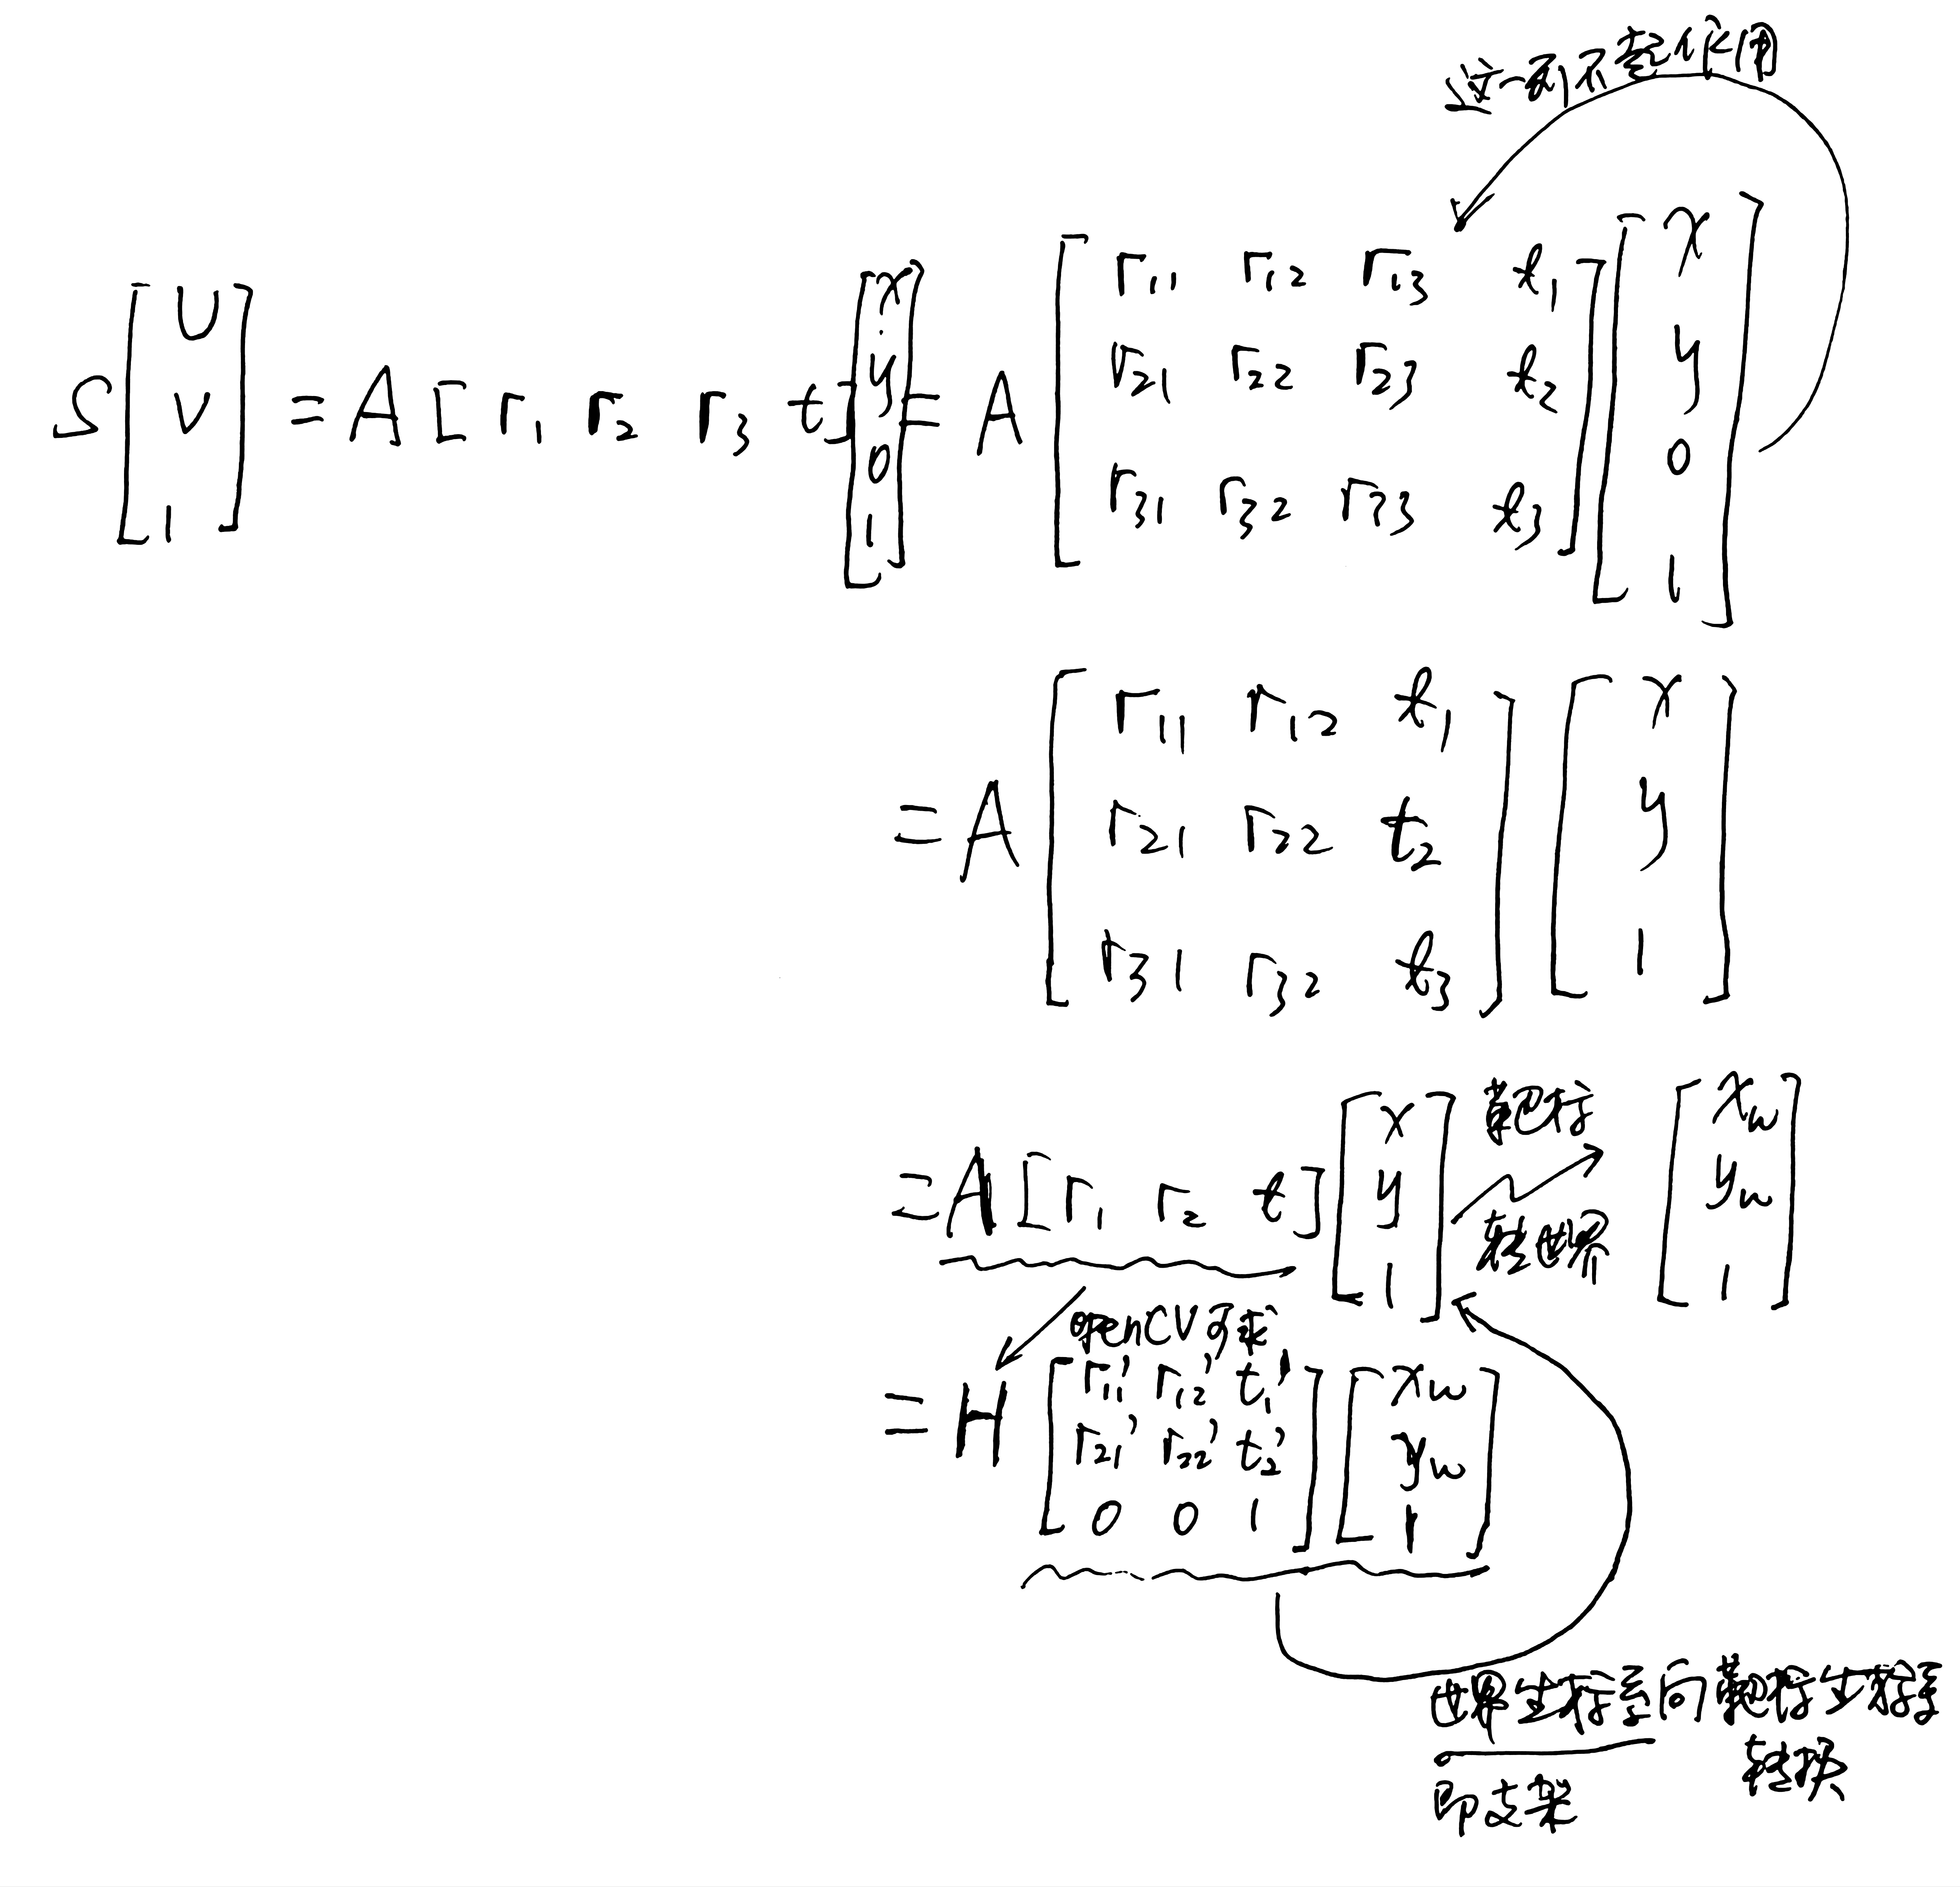 这一列不起作用
S [U V 1] = A [ r1 r2 r3 t ] [x y 0 1] = A [ r11 r12 r13 t1 ; r21 r22 r23 t2 ; r31 r32 r33 t3 ] [x y 0 1]
= A [ r11 r12 t1 ; r21 r22 t2 ; r31 r32 t3 ] [x y 1]
= A [ r1 r2 t ] [x y 1] [xw yw 1]
openCV可求
= H [ r11' r12' t1' ; r21' r22' t2' ; 0 0 1 ] [xw yw 1]
世界坐标系向
转换
即支架